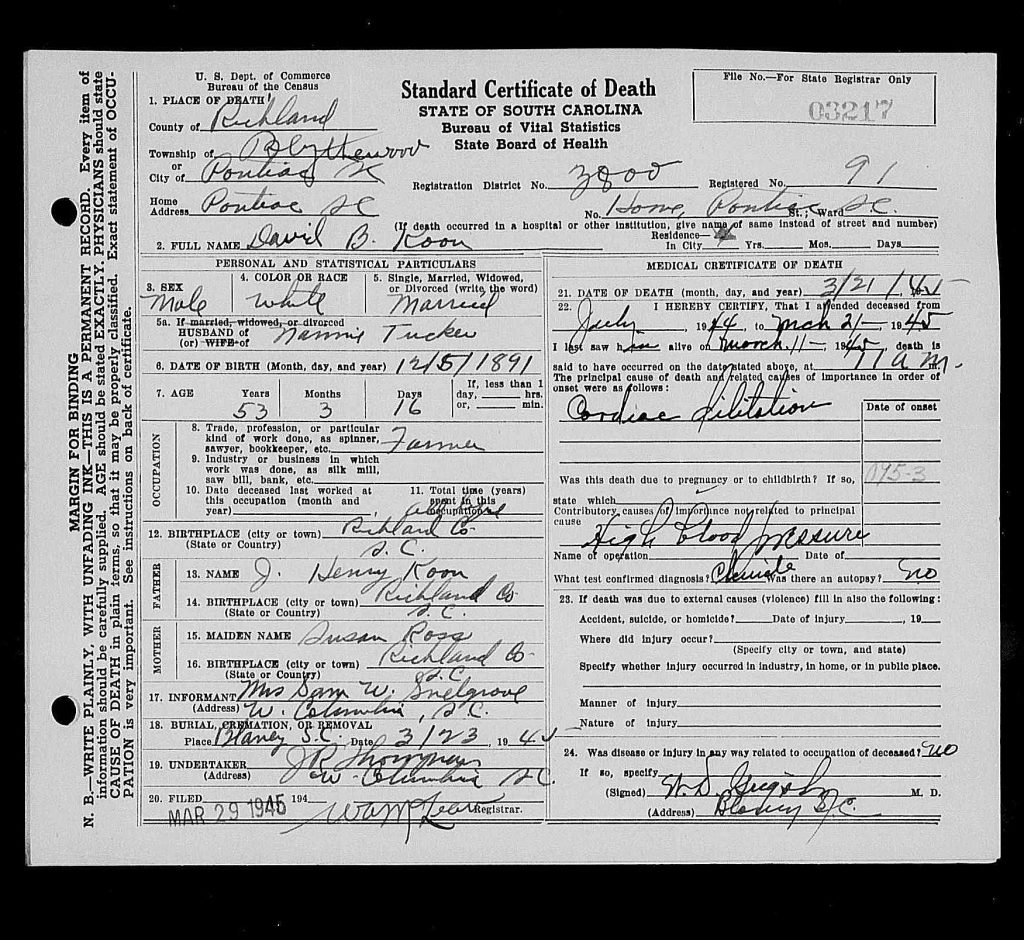 MARGIN FOR BINDING
N. B.—WRITE PLAINLY, WITH UNFADING INK—THIS IS A PERMANENT RECORD. Every item of
information should be carefully supplied. AGE should be stated EXACTLY. PHYSICIANS should state
CAUSE OF DEATH in plain terms, so that it may be properly classified. Exact statement of OCCU-
PATION is very important. See instructions on back of certificate.
U. S. Dept. of Commerce
Bureau of the Census
Standard Certificate of Death
STATE OF SOUTH CAROLINA
Bureau of Vital Statistics
State Board of Health
File No.—For State Registrar Only
03217
1. PLACE OF DEATH
County of Richland
Township of Blythewood
or
City of Pontiac SC
Registration District No. 3800 Registered No. 91
Home
Address Pontiac SC
No. Home, Pontiac St.; Ward SC.
(If death occurred in a hospital or other institution, give name of same instead of street and number)
2. FULL NAME David B. Koon
Residence—
In City Yrs. Mos. Days
PERSONAL AND STATISTICAL PARTICULARS
3. SEX
Male
4. COLOR OR RACE
White
5. Single, Married, Widowed,
or Divorced (write the word)
Married
5a. If married, widowed, or divorced
HUSBAND of
(or) WIFE of
Nannie Tucker
6. DATE OF BIRTH (Month, day, and year) 12/5/1891
7. AGE Years Months Days If, less than 1
day, hrs.
or, min.
53 3 16
OCCUPATION
8. Trade, profession, or particular
kind of work done, as spinner,
sawyer, bookkeeper, etc. Farmer
9. Industry or business in which
work was done, as silk mill,
saw bill, bank, etc.
10. Date deceased last worked at
this occupation (month and
year)
11. Total time (years)
spent in this
occupation
12. BIRTHPLACE (city or town) Richland Co
(State or Country) S.C.
FATHER
13. NAME J. Henry Koon
14. BIRTHPLACE (city or town) Richland Co
(State or Country) S.C.
MOTHER
15. MAIDEN NAME Susan Ross
16. BIRTHPLACE (city or town) Richland Co
(State or Country) S.C
17. INFORMANT Mrs Sam W. Snelgrove
(Address) W. Columbia, S.C.
18. BURIAL, CREMATION, OR REMOVAL
Place Blaney S.C. Date 3/23, 1945
19. UNDERTAKER J R Thompson
(Address) W. Columbia SC
20. FILED 194
MAR 29 1945
Registrar.
MEDICAL CRETIFICATE OF DEATH
21. DATE OF DEATH (month, day, and year) 3/21/45
22. I HEREBY CERTIFY, That I attended deceased from
July 1944, to Mch 21— 1945
I last saw him alive on March 11— 1945, death is
said to have occurred on the date stated above, at 11 a m.
The principal cause of death and related causes of importance in order of
onset were as follows:
Date of onset
Cardiac dilitation
Was this death due to pregnancy or to childbirth? If so,
state which
Contributory causes of importance not related to principal
cause
High blood pressure
Name of operation Date of
What test confirmed diagnosis? Was there an autopsy? No
23. If death was due to external causes (violence) fill in also the following:
Accident, suicide, or homicide? Date of injury , 19
Where did injury occur?
(Specify city or town, and state)
Specify whether injury occurred in industry, in home, or in public place.
Manner of injury
Nature of injury
24. Was disease or injury in any way related to occupation of deceased? No
If so, specify
(Signed) W. D. M. D.
(Address) Blaney S.C.